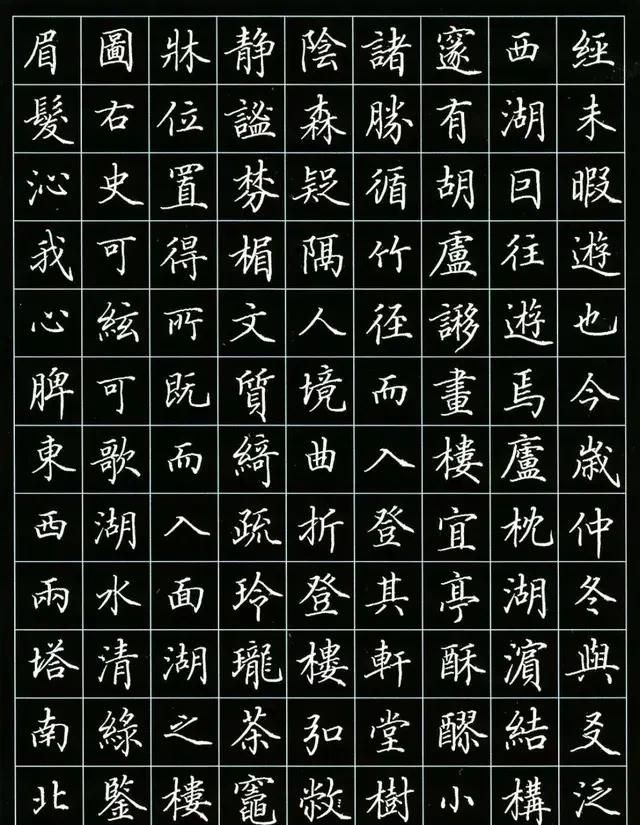 經未暇遊也今歲仲冬與友泛
西湖回往遊焉廬枕湖濵結構
邃有胡廬謻畫樓宜亭酥醪小
諸勝循竹徑而入登其軒堂樹
陰森疑隔人境曲折登樓弘敞
静謐棼楣文質綺疏玲瓏茶竈
牀位置得所既而入面湖之樓
圖右史可絃可歌湖水清綠鑒
眉髮沁我心脾東西兩塔南北